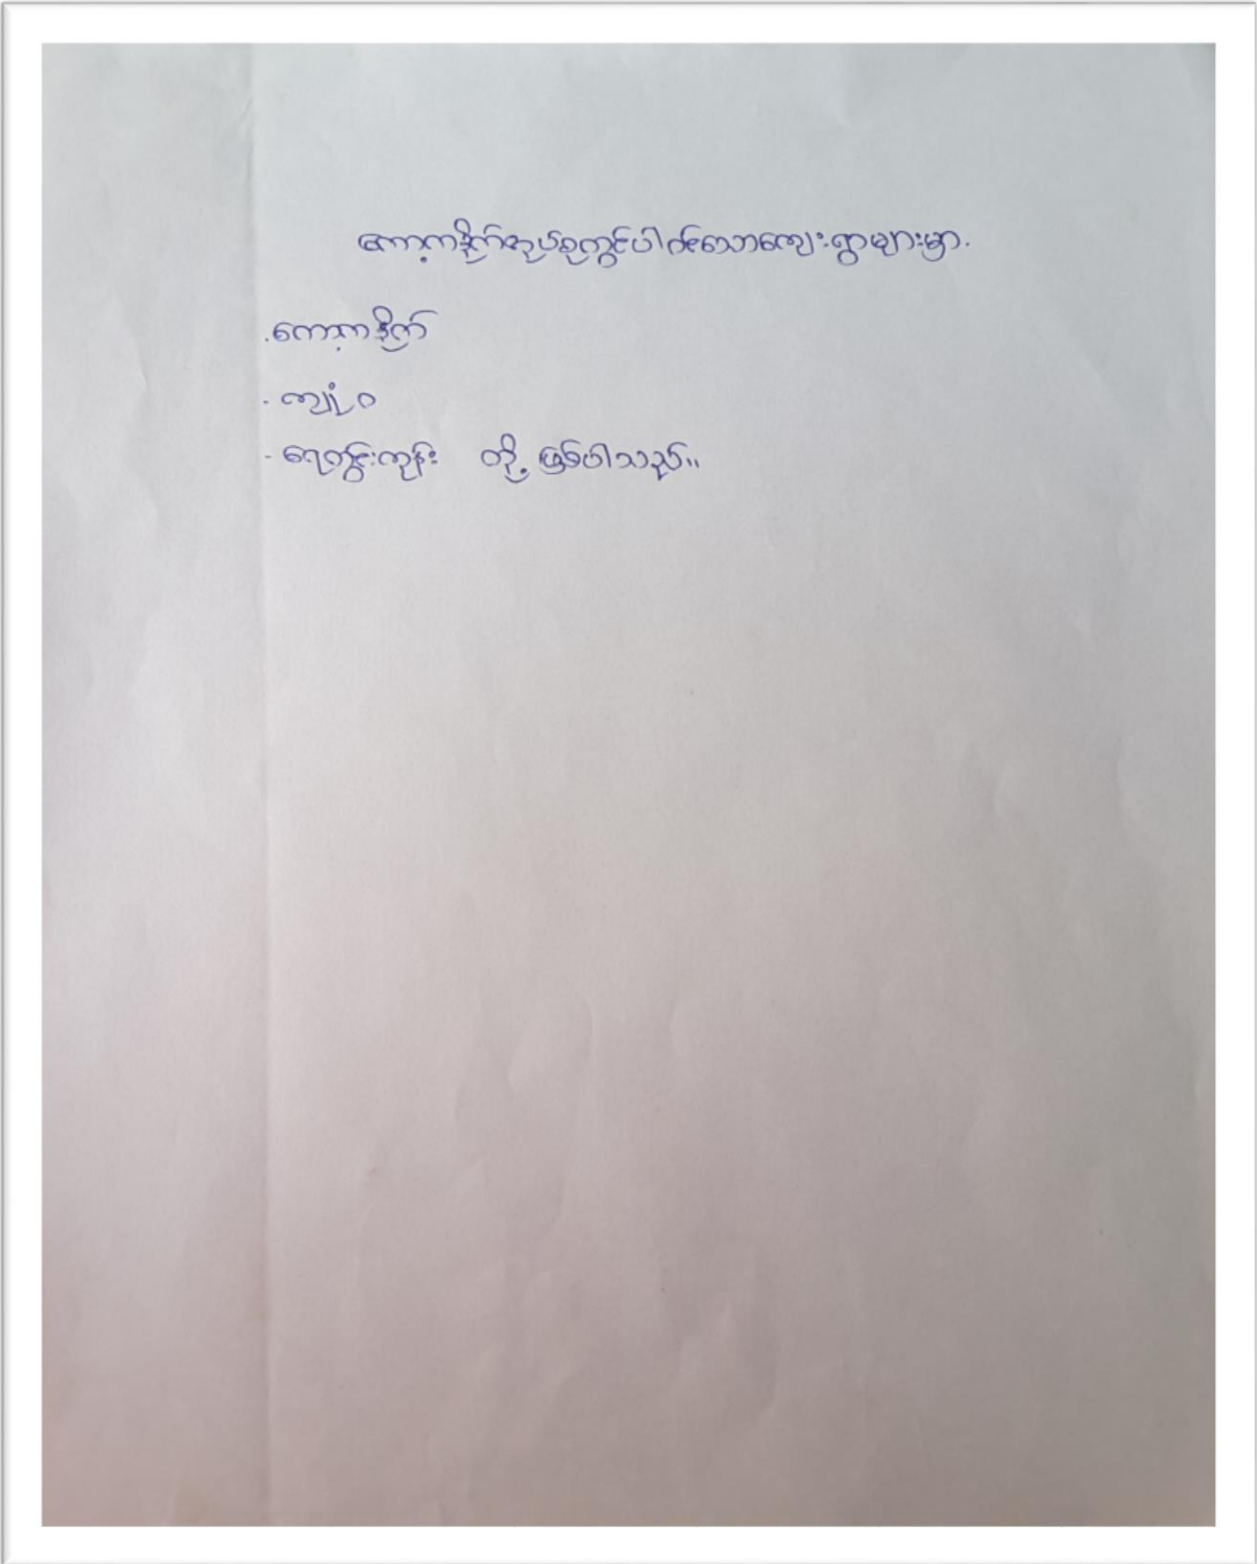 ကော့ကဒိုက်အုပ်စုတွင်ပါဝင်သောကျေးရွာများမှာ.
.ကော့ကဒိုက်
- ကျုံဝ
- ရေတွင်းကုန်း တို့ ဖြစ်ပါသည်။